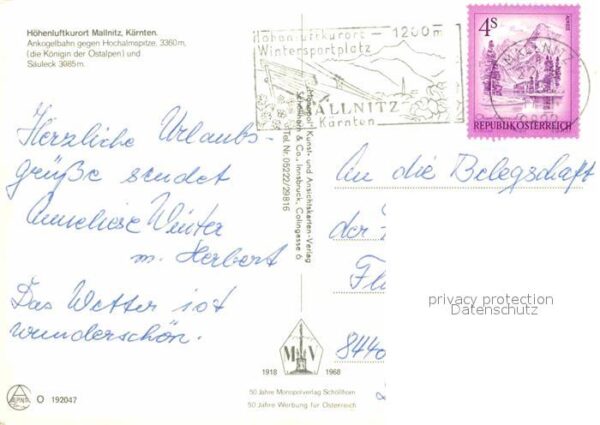 Höhenluftkurort Mallnitz, Kärnten.
Ankogelbahn gegen Hochalmspitze, 3360m,
(die Königin der Ostalpen) und
Säuleck 3085m.
Höhenluftkurort — 1200m
Wintersportplatz
MALLNITZ
Kärnten
4S
REPUBLIK ÖSTERREICH
MALLNITZ
Herzliche Urlaubs-
grüße sendet
Anneliese Winter
m. Herbert
Das Wetter ist
wunderschön.
Kunst- und Ansichtskarten-Verlag
Schöllhorn & Co., Innsbruck, Colingasse 6
Tel. Nr. 05222/29816
An die Belegschaft
der
privacy protection
Datenschutz
8440
MV
1918 1968
50 Jahre Monopolverlag Schöllhorn
50 Jahre Werbung für Österreich
O 192047